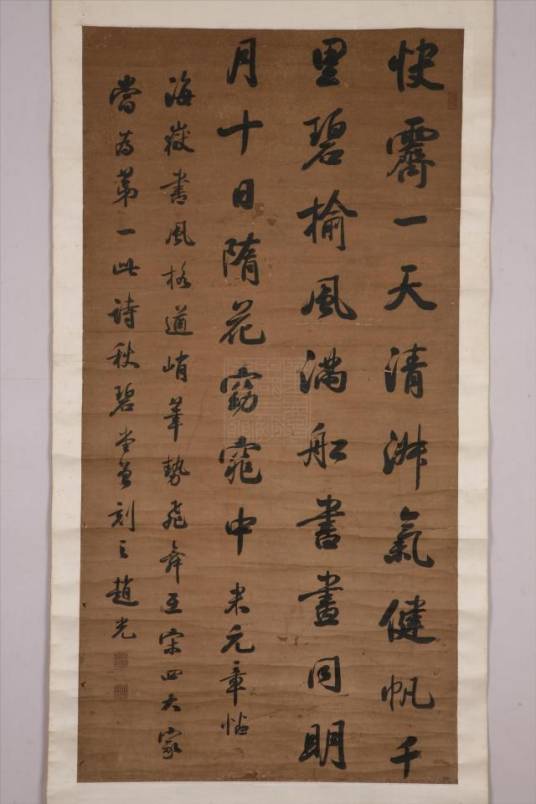 快霽一天清淑氣健帆千
里碧榆風滿船書畫同明
月十日隋花窈窕中 米元章帖
海嶽書風格遒峭筆勢飛舞在宋四大家
當為第一此詩秋碧堂曾刻之趙光